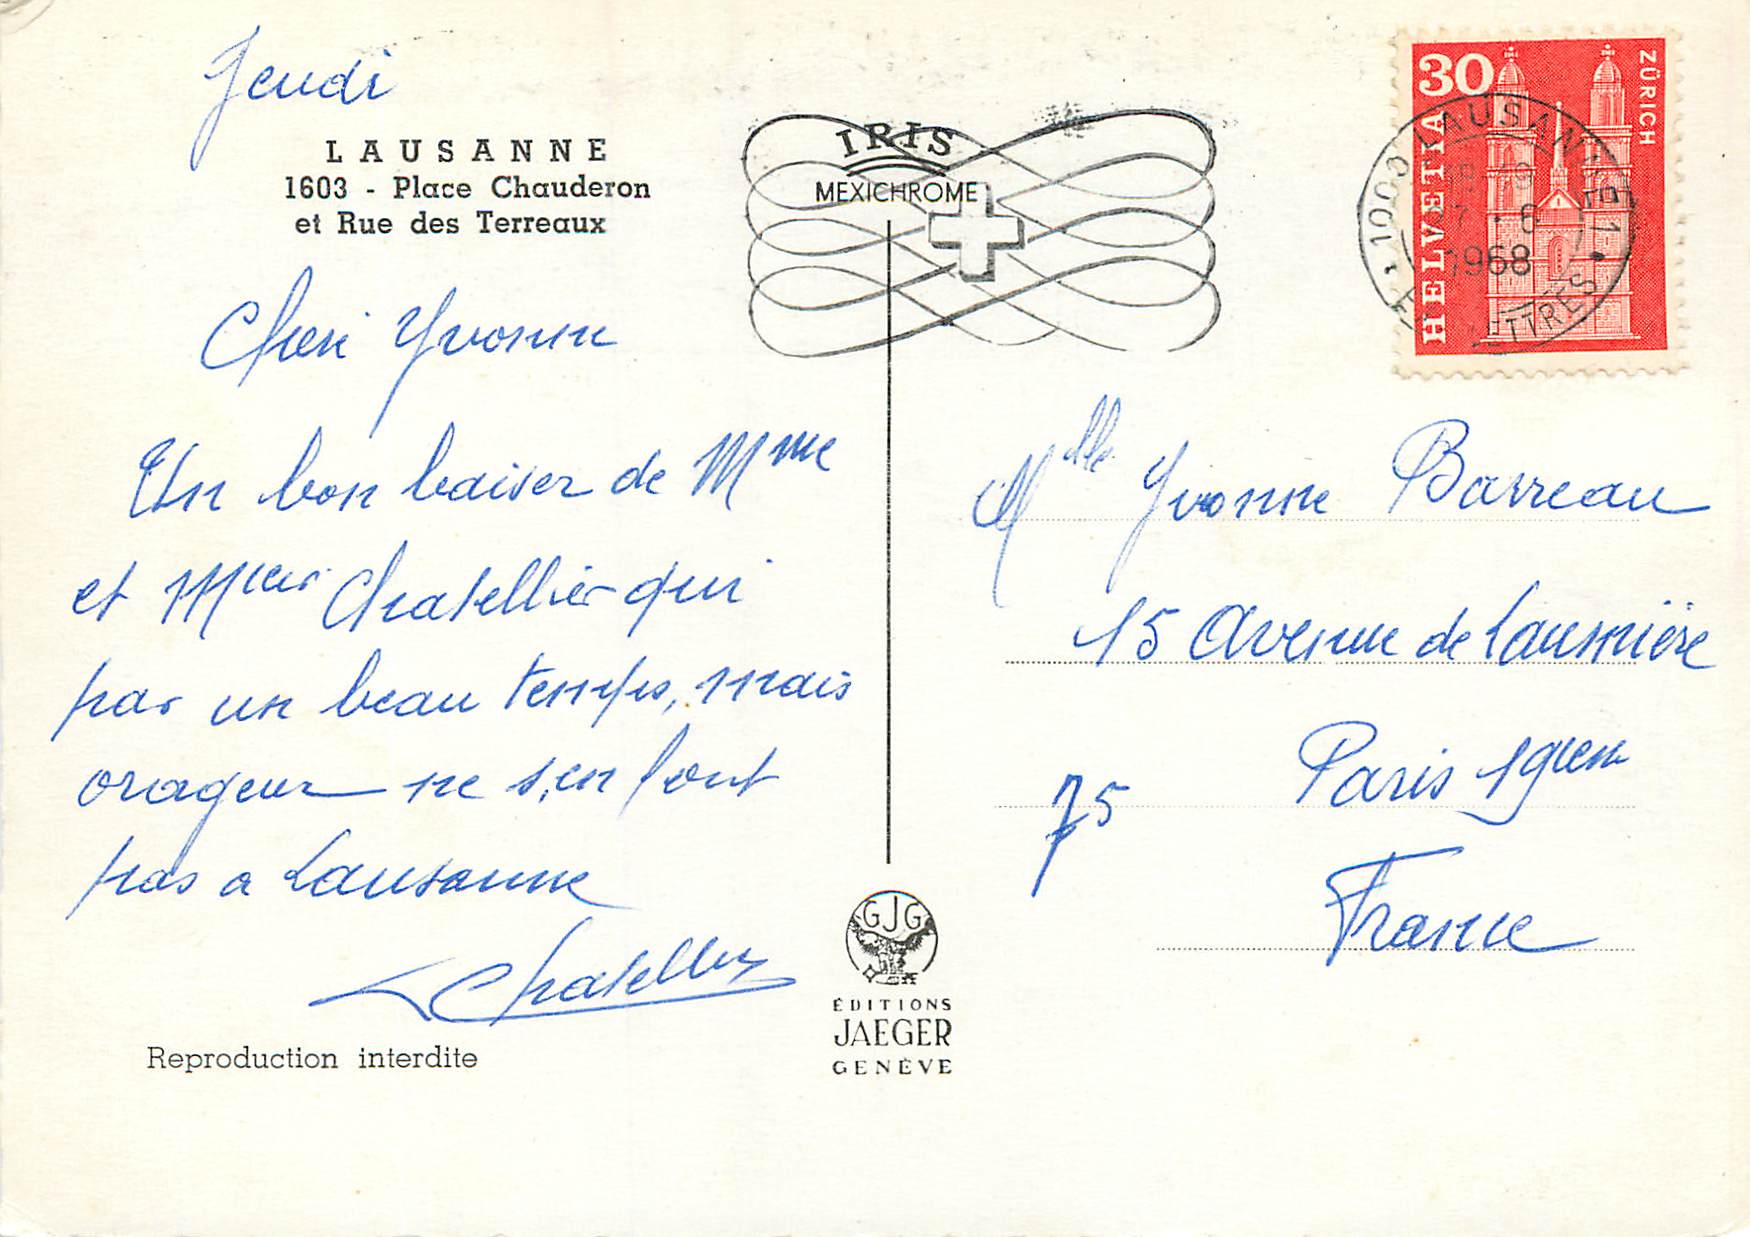 Jeudi
LAUSANNE
1603 - Place Chauderon
et Rue des Terreaux
Cheri Yvonne
Un bon baiser de Mme
et Mieur Chatellier qui
par un beau temps, mais
orageux ne s'en font
pas a Lausanne
Chatellier
Reproduction interdite
IRIS
MEXICHROME
GJG
ÉDITIONS
JAEGER
GENÈVE
30
HELVETIA
ZÜRICH
1000 LAUSANNE 1
LETTRES
1968
Mlle Yvonne Barreau
15 Avenue de Laumière
Paris 19iem
75
France